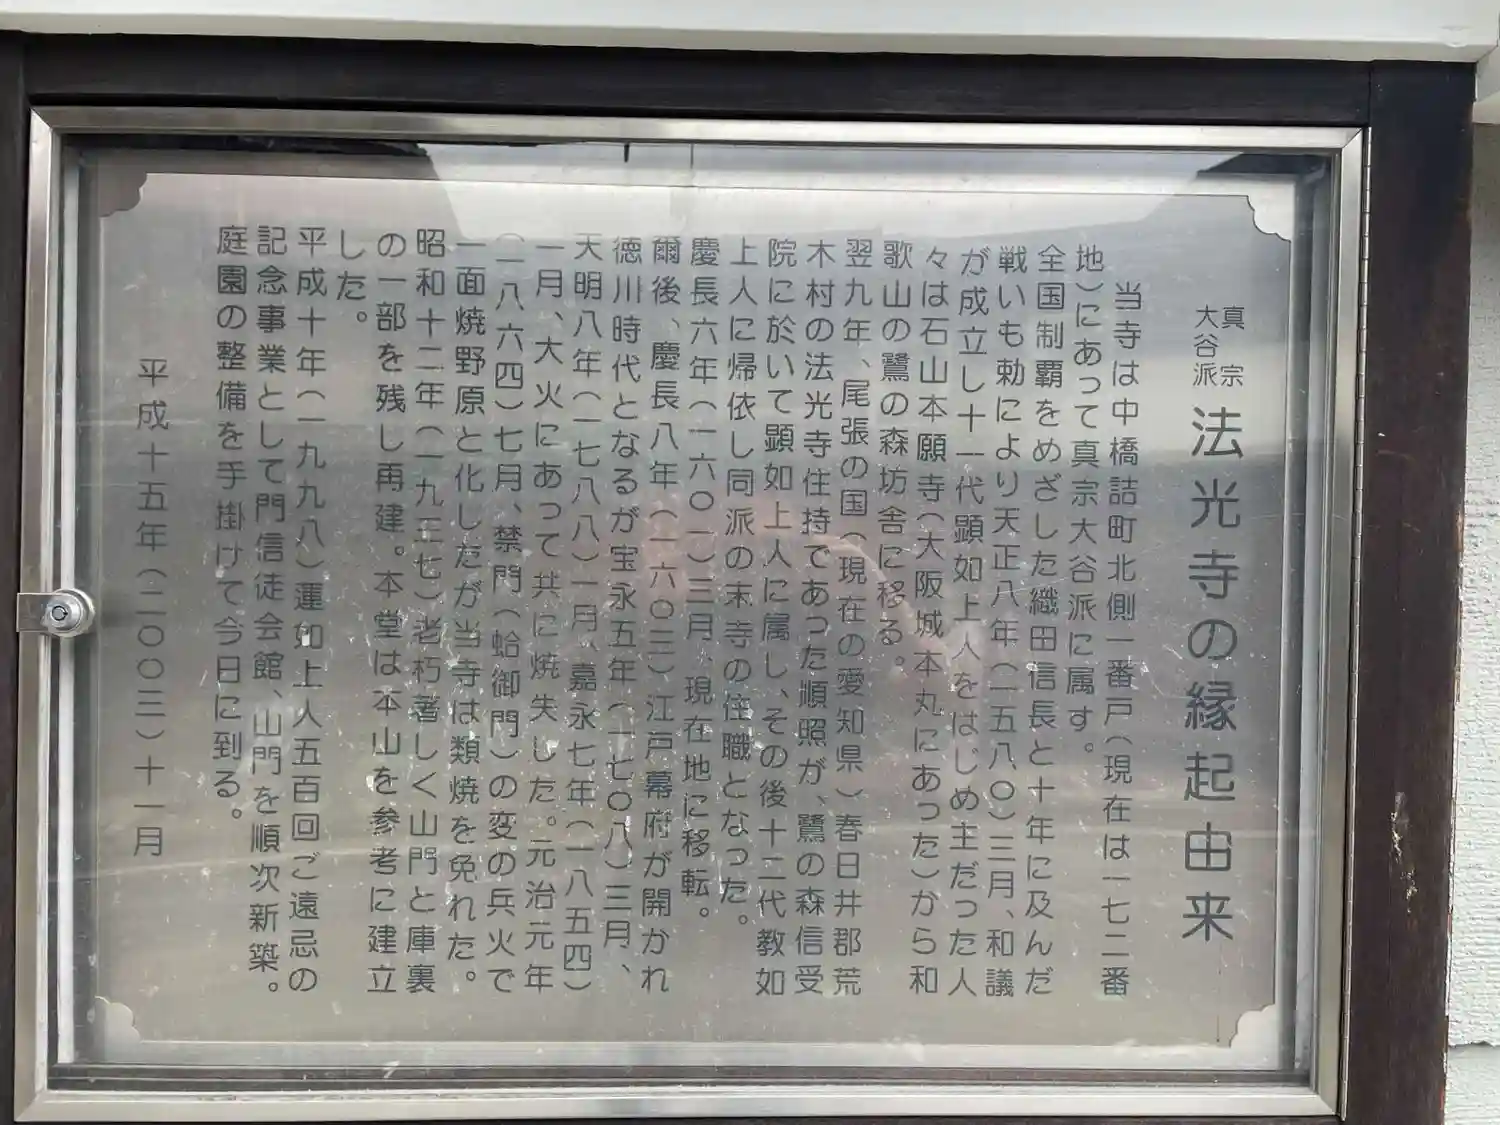 真宗
大谷派 法光寺の縁起由来
当寺は中橋詰町北側一番戸(現在は一七二番
地)にあって真宗大谷派に属す。
全国制覇をめざした織田信長と十年に及んだ
戦いも勅により天正八年(一五八〇)三月、和議
が成立し十一代顕如上人をはじめ主だった人
々は石山本願寺(大阪城本丸にあった)から和
歌山の鷺の森坊舎に移る。
翌九年、尾張の国(現在の愛知県)春日井郡荒
木村の法光寺住持であった順照が、鷺の森信受
院に於いて顕如上人に属し、その後十二代教如
上人に帰依し同派の末寺の住職となった。
慶長六年(一六〇一)三月、現在地に移転。
爾後、慶長八年(一六〇三)江戸幕府が開かれ
徳川時代となるが宝永五年(一七〇八)三月、
天明八年(一七八八)一月、嘉永七年(一八五四)
一月、大火にあって共に焼失した。元治元年
(一八六四)七月、禁門(蛤御門)の変の兵火で
一面焼野原と化したが当寺は類焼を免れた。
昭和十二年(一九三七)老朽著しく山門と庫裏
の一部を残し再建。本堂は本山を参考に建立
した。
平成十年(一九九八)蓮如上人五百回ご遠忌の
記念事業として門信徒会館、山門を順次新築。
庭園の整備を手掛けて今日に到る。
平成十五年(二〇〇三)十一月